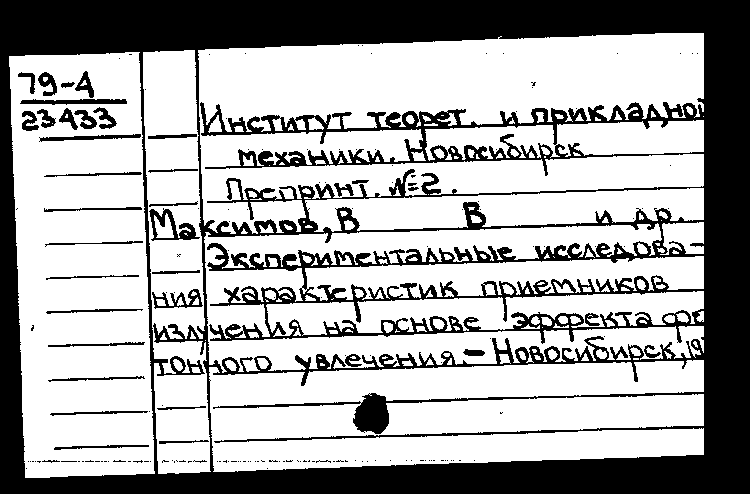 79-4
23433
Институт теорет. и прикладной
механики. Новосибирск.
Препринт. №2.
Максимов, В В и др.
Экспериментальные исследова-
ния характеристик приемников
излучения на основе эффекта фо
тонного увлечения. - Новосибирск, 19